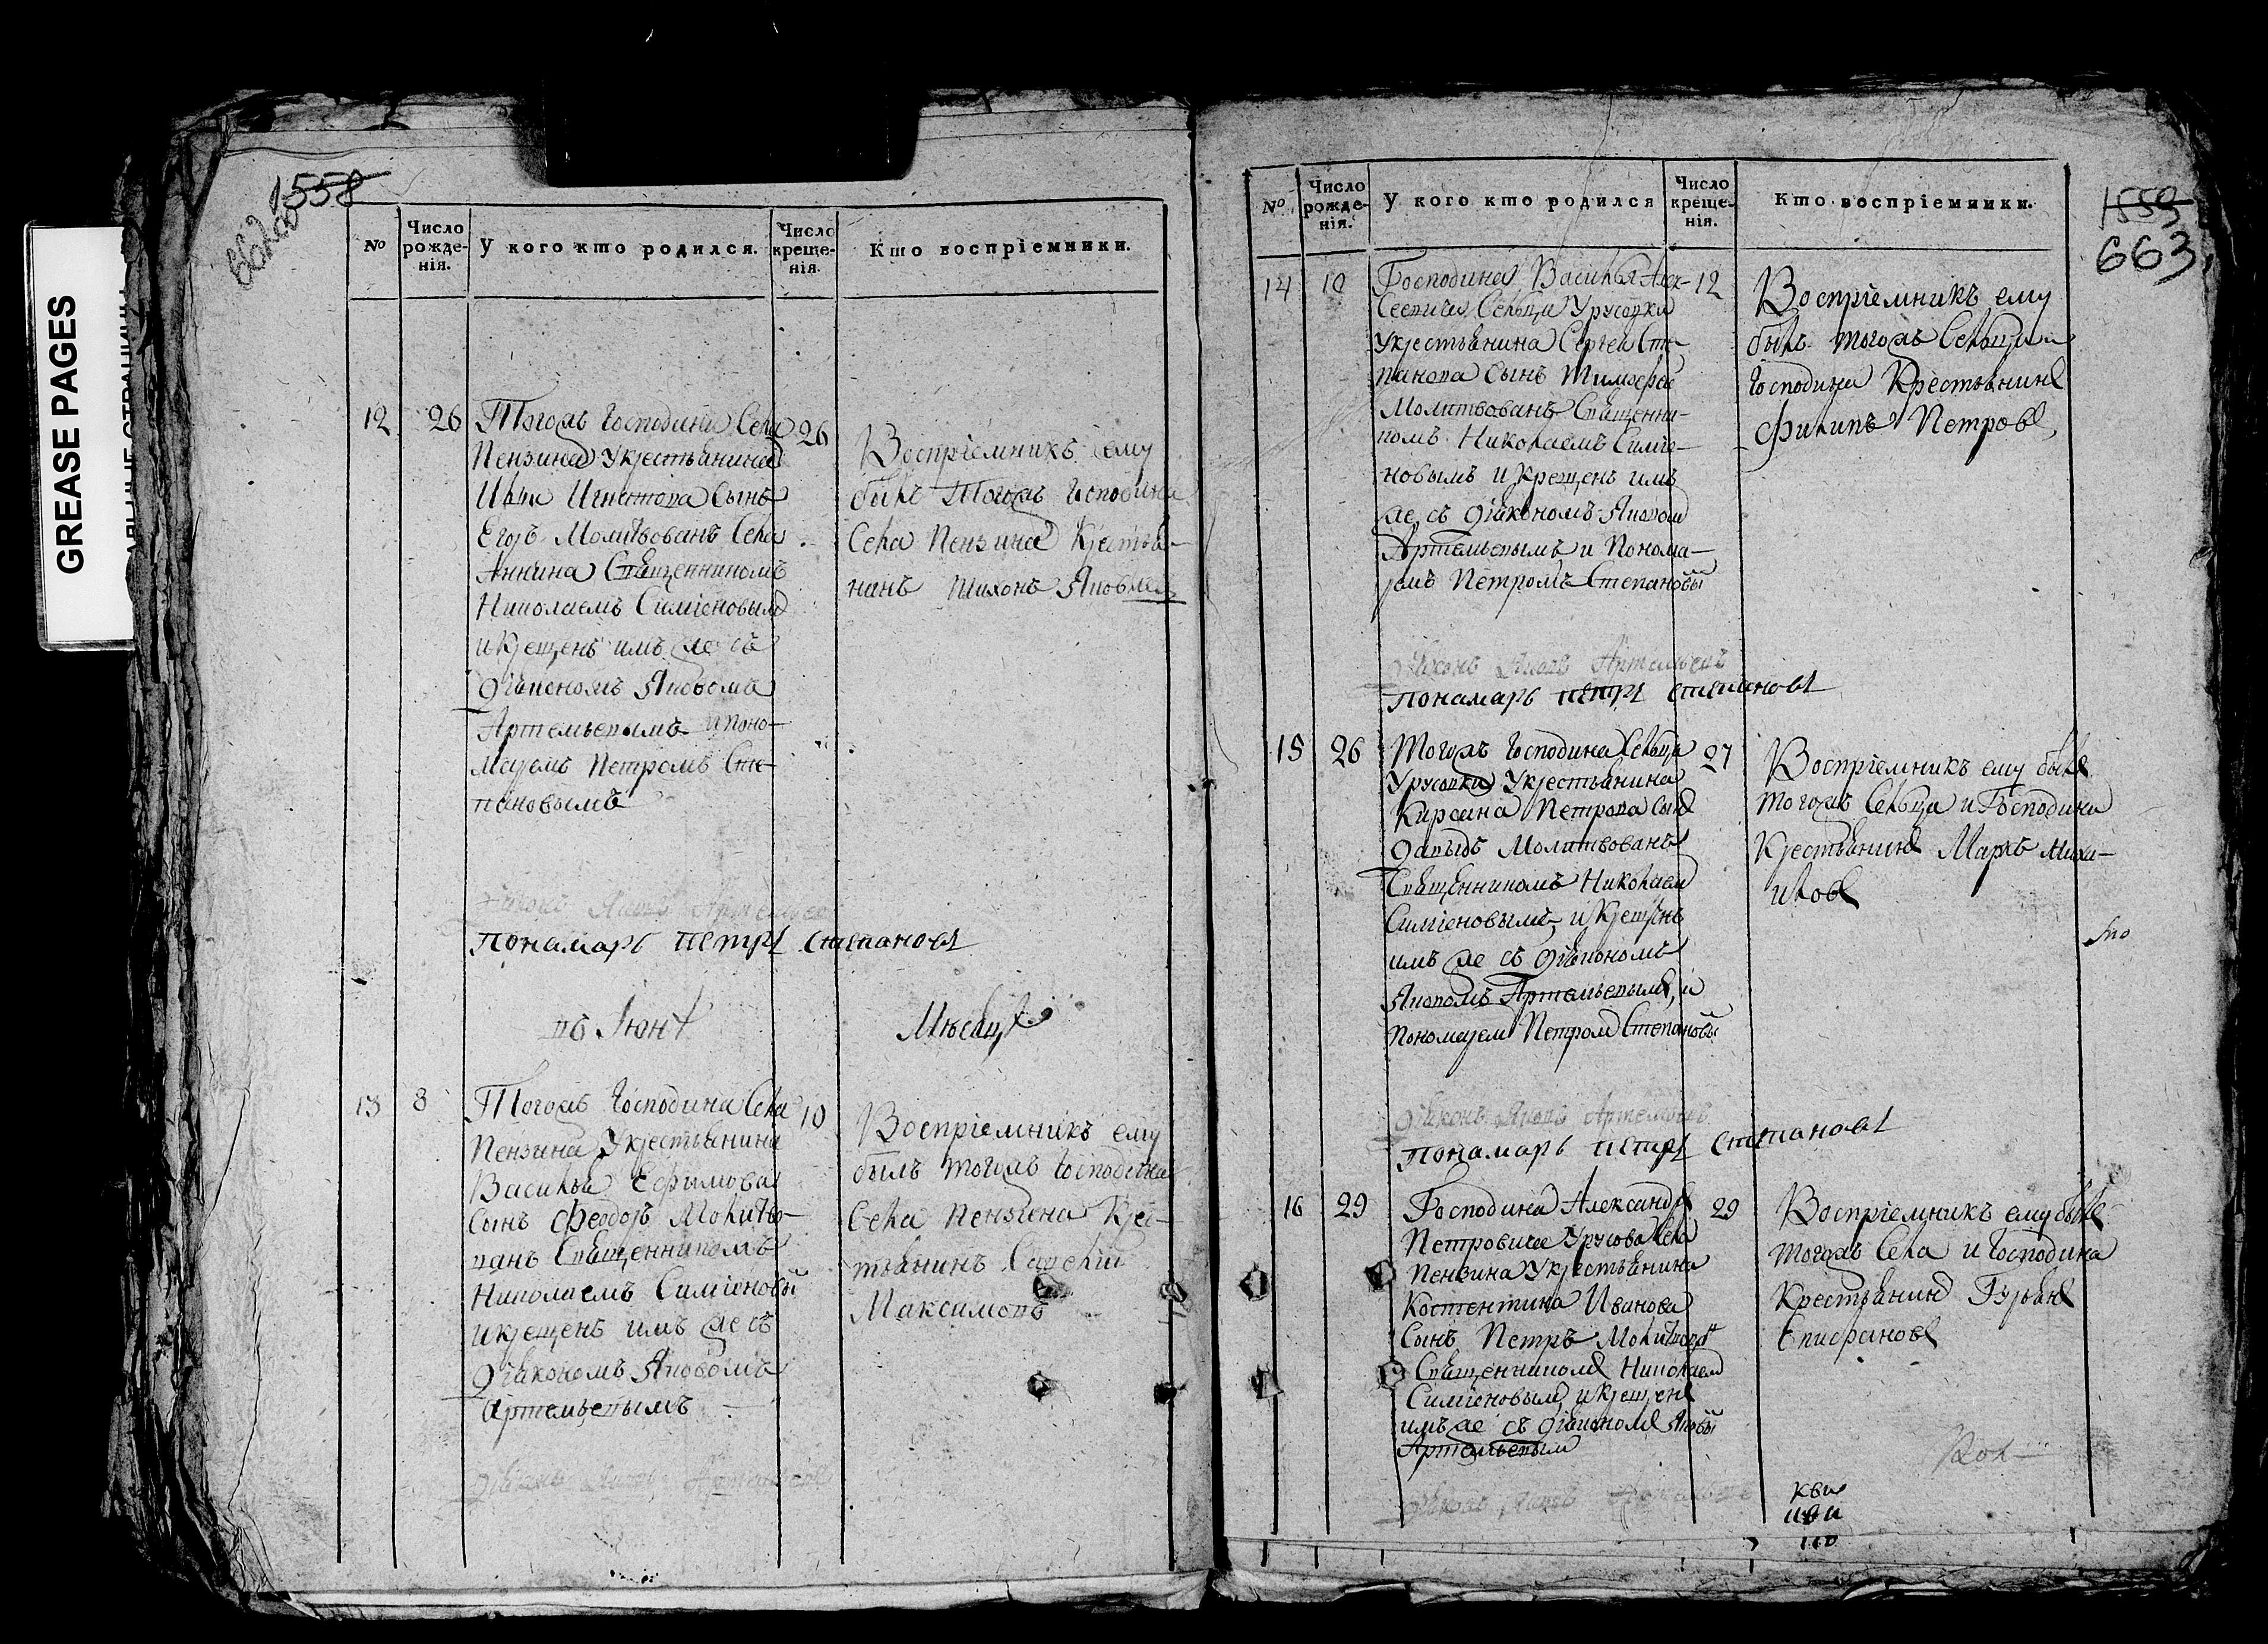 GREASE PAGES
1558
662об
№
Число рожде-нія.
У кого кто родился.
Число креще-нія.
Кто воспріемники.
12
26
Тогожъ Господина Села
Пензина Укрестьянина
Игнатова Сынъ
Егоръ Молитвованъ Села
Аннина Священникомъ
Николаемъ Симіеновымъ
и Крещенъ имъ же съ
Діакономъ Яковомъ
Артемьевымъ и Поно-
маремъ Петромъ Сте-
пановымъ
26
Воспріемникъ ему
былъ Тогожъ Господина
Села Пензина Крестья-
нинъ Тихонъ Яковлев
Діаконъ Яковъ Артемьев
Понамарь петръ степановъ
въ Іюнѣ
Мѣсяцѣ
13
8
Тогожъ Господина Села
Пензина Укрестьянина
Василья Ефимова
Сынъ Феодоръ Молитво-
ванъ Священникомъ
Николаемъ Симіеновы
и крещенъ имъ же съ
Діакономъ Яковомъ
Артемьевымъ
10
Воспріемникъ ему
былъ тогожъ Господина
Села Пензена Крес-
тьянинъ Савелій
Максимовъ
Діаконъ Яковъ Артемьевъ
1559
663
№
Число рожде-нія.
У кого кто родился
Число креще-нія.
Кто воспріемники.
14
10
Господина Василья Алек-
Сеевича Сельца Урусовки
Укрестьянина Сергея Сте-
панова Сынъ Тимофей
Молитвованъ Священни-
комъ Николаемъ Симіе-
новымъ и Крещенъ имъ
же съ діакономъ Яковом
Артемьевымъ и Понома-
ремъ Петромъ Степановы
12
Воспріемникъ ему
былъ тогожъ Сельца и
Господина Крестьянинъ
Филипъ Петровъ
Діаконъ Яковъ Артемьевъ
Понамарь петръ степановъ
15
26
Тогожъ Господина Сельца
Урусовки Укрестьянина
Кирсана Петрова Сынъ
Давыдъ Молитвованъ
Священникомъ Николаем
Симіеновымъ и Крещенъ
имъ же съ Діакономъ
Яковомъ Артемьевымъ и
Пономарем Петром Степановы
27
Воспріемникъ ему былъ
тогожъ Сельца и Господина
Крестьянинъ Маркъ Миха-
иловъ
Діаконъ Яковъ Артемьевъ
Понамарь петръ степановъ
16
29
Господина Александра
Петровича Урусова Села
Пензина Укрестьянина
Костентина Иванова
Сынъ Петръ Молитвован
Священникомъ Николаем
Симіеновым и крещенъ
имъ же съ діакономъ Яковы
Артемьевым
29
Воспріемникъ ему былъ
тогожъ Села и Господина
Крестьянинъ Гурьянъ
Епифановъ
Діаконъ Яковъ